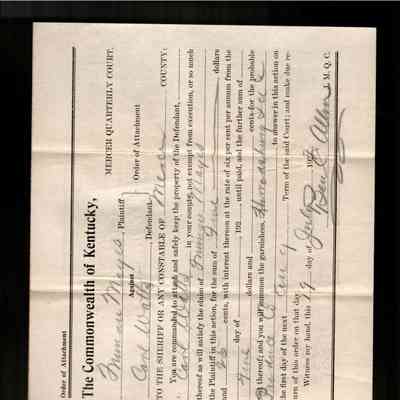 Order of Attachment
The Commonwealth of Kentucky, MERCER QUARTERLY COURT.
Truman Mayes, Plaintiff
Against Order of Attachment
Carl Watts, Defendant
TO THE SHERIFF OR ANY CONSTABLE OF Mercer COUNTY:
You are commanded to attach and safely keep the property of the Defendant,
Carl Watts in your county, not exempt from execution, or so much
thereof as will satisfy the claim of Truman Mayes
the Plaintiff in this action, for the sum of Five dollars
and cents, with interest thereon at the rate of six per cent per annum from the
day of 192 , until paid, and the further sum of
dollars and cents for the probable
thereof; and you will summon the garnishees, Harrodsburg
Produce Co to answer in this action on
the first day of the next Term of the said Court; and make due re-
turn of this order on that day
Witness my hand, this 19 day of July 192
Ben C. Allen M. Q. C.